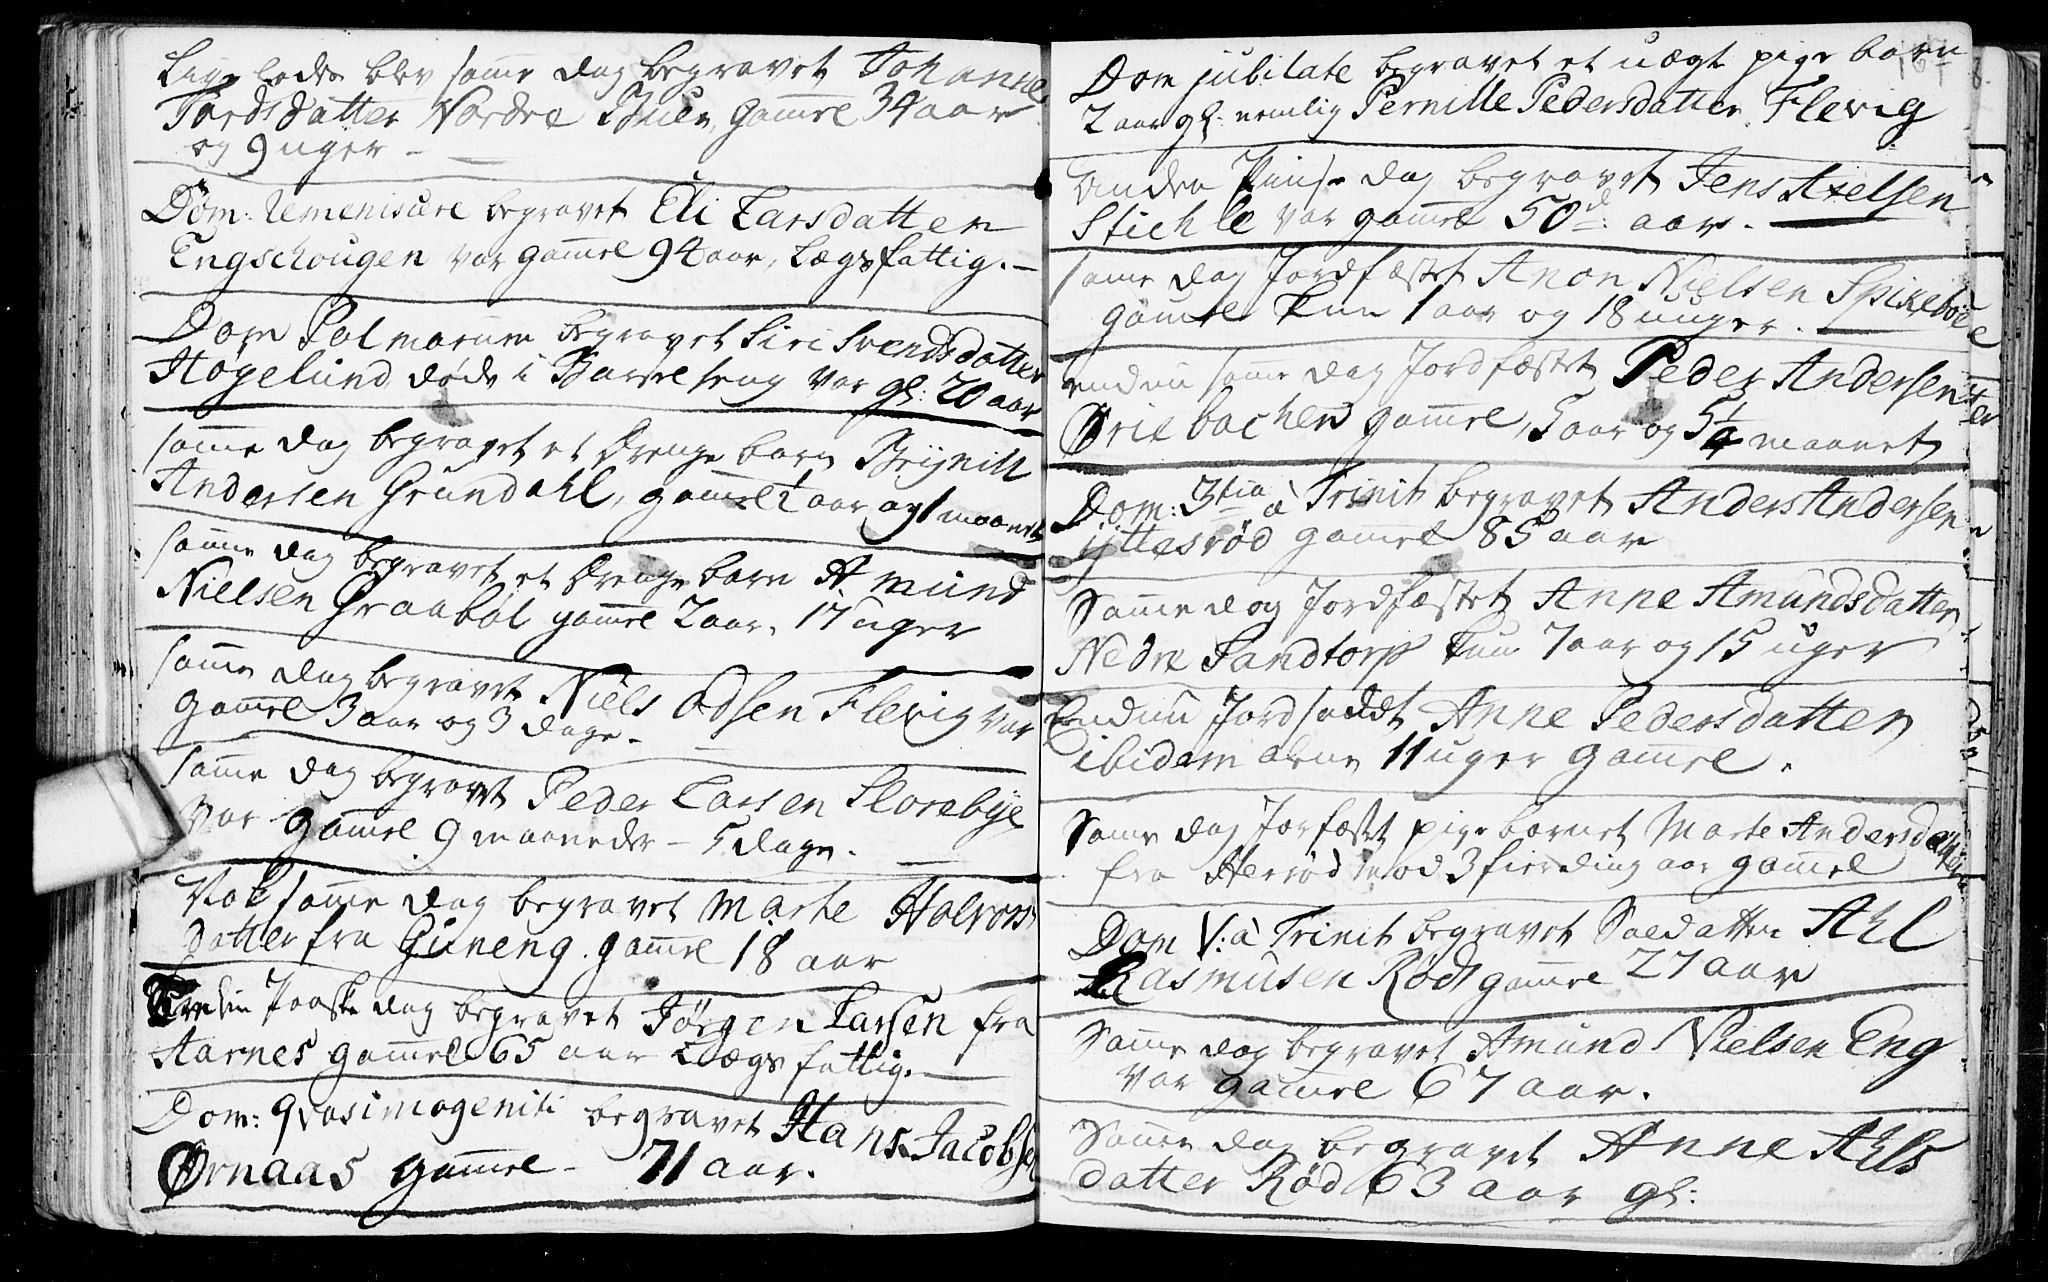 Lige ledes blev samme dag begravet Johanne
Tordsdatter Nordre gamel 34 aar
og 9 uger -
Dom: Remeniscere begravet Eli Larsdatter
Engschougen var gamel 94 aar, Lægsfattig. -
Dom Palmarum begravet Siri Svendsdatter
Høgelund døde i Barsel seng var gl: 20 aar
samme dag begravet et Drenge barn Brynild
Andersen Grundahl, gamel 1 aar og 1 maanet
samme dag begravet et Drenge barn Amund
Nielsen Graabøl gamel 2 aar, 17 uger
samme dag begravet Niels Odsen Flevig var
gamel 3 aar og 3 dage.
samme dag begravet Peder Larsen Slorebye
var gamel 9 maaneder - 5 dage. -
Nok samme dag begravet Marte Halvors
datter fra Guneng. gamel 18 aar
Paaske dag begravet Jørgen Larsen fra
Aarnes gamel 65 aar Lægsfattig. -
Dom: qvasimogeniti begravet Hans Jacobsen
Ørnaas gamel - 71 aar.
Dom jubilate begravet et uægt pige barn
2 aar gl: nemlig Pernille Pedersdatter Flevig
Anden Pinse dag begravet Jens Axelsen
Stichle var gamel 50 aar. -
same dag Jordfæstet Anon Nielsen Spikeboel
gamel kun 1 aar og 18 uuger. -
endnu same dag Jordfæstet Peder Andersen
Øriebachen gamel, 5 aar og 5 1/4 maanet
Dom: 3tia à Trinit begravet Anders Andersen
yttesrød gamel 85 aar
Samme dag Jordfæstet Anne Amundsdatter
Nedre Sandtorp kun 7 aar og 15 uger
Endnu Jordsadt Anne Pedersdatter
ibidem alene 11 uger gamel.
Same dag Jorfæstet pige barnet Marte Andersdatter
fra Herrød mod 3 fierding aar gamel
Dom V: à Trinit begravet Soldatten Ahl
Rasmusen Røds gamel 27 aar
Samme dag begravet Amund Nielsen Eng
var gamel 67 aar.
Samme dag begravet Anne Ahls
datter Rød 63 aar gl: